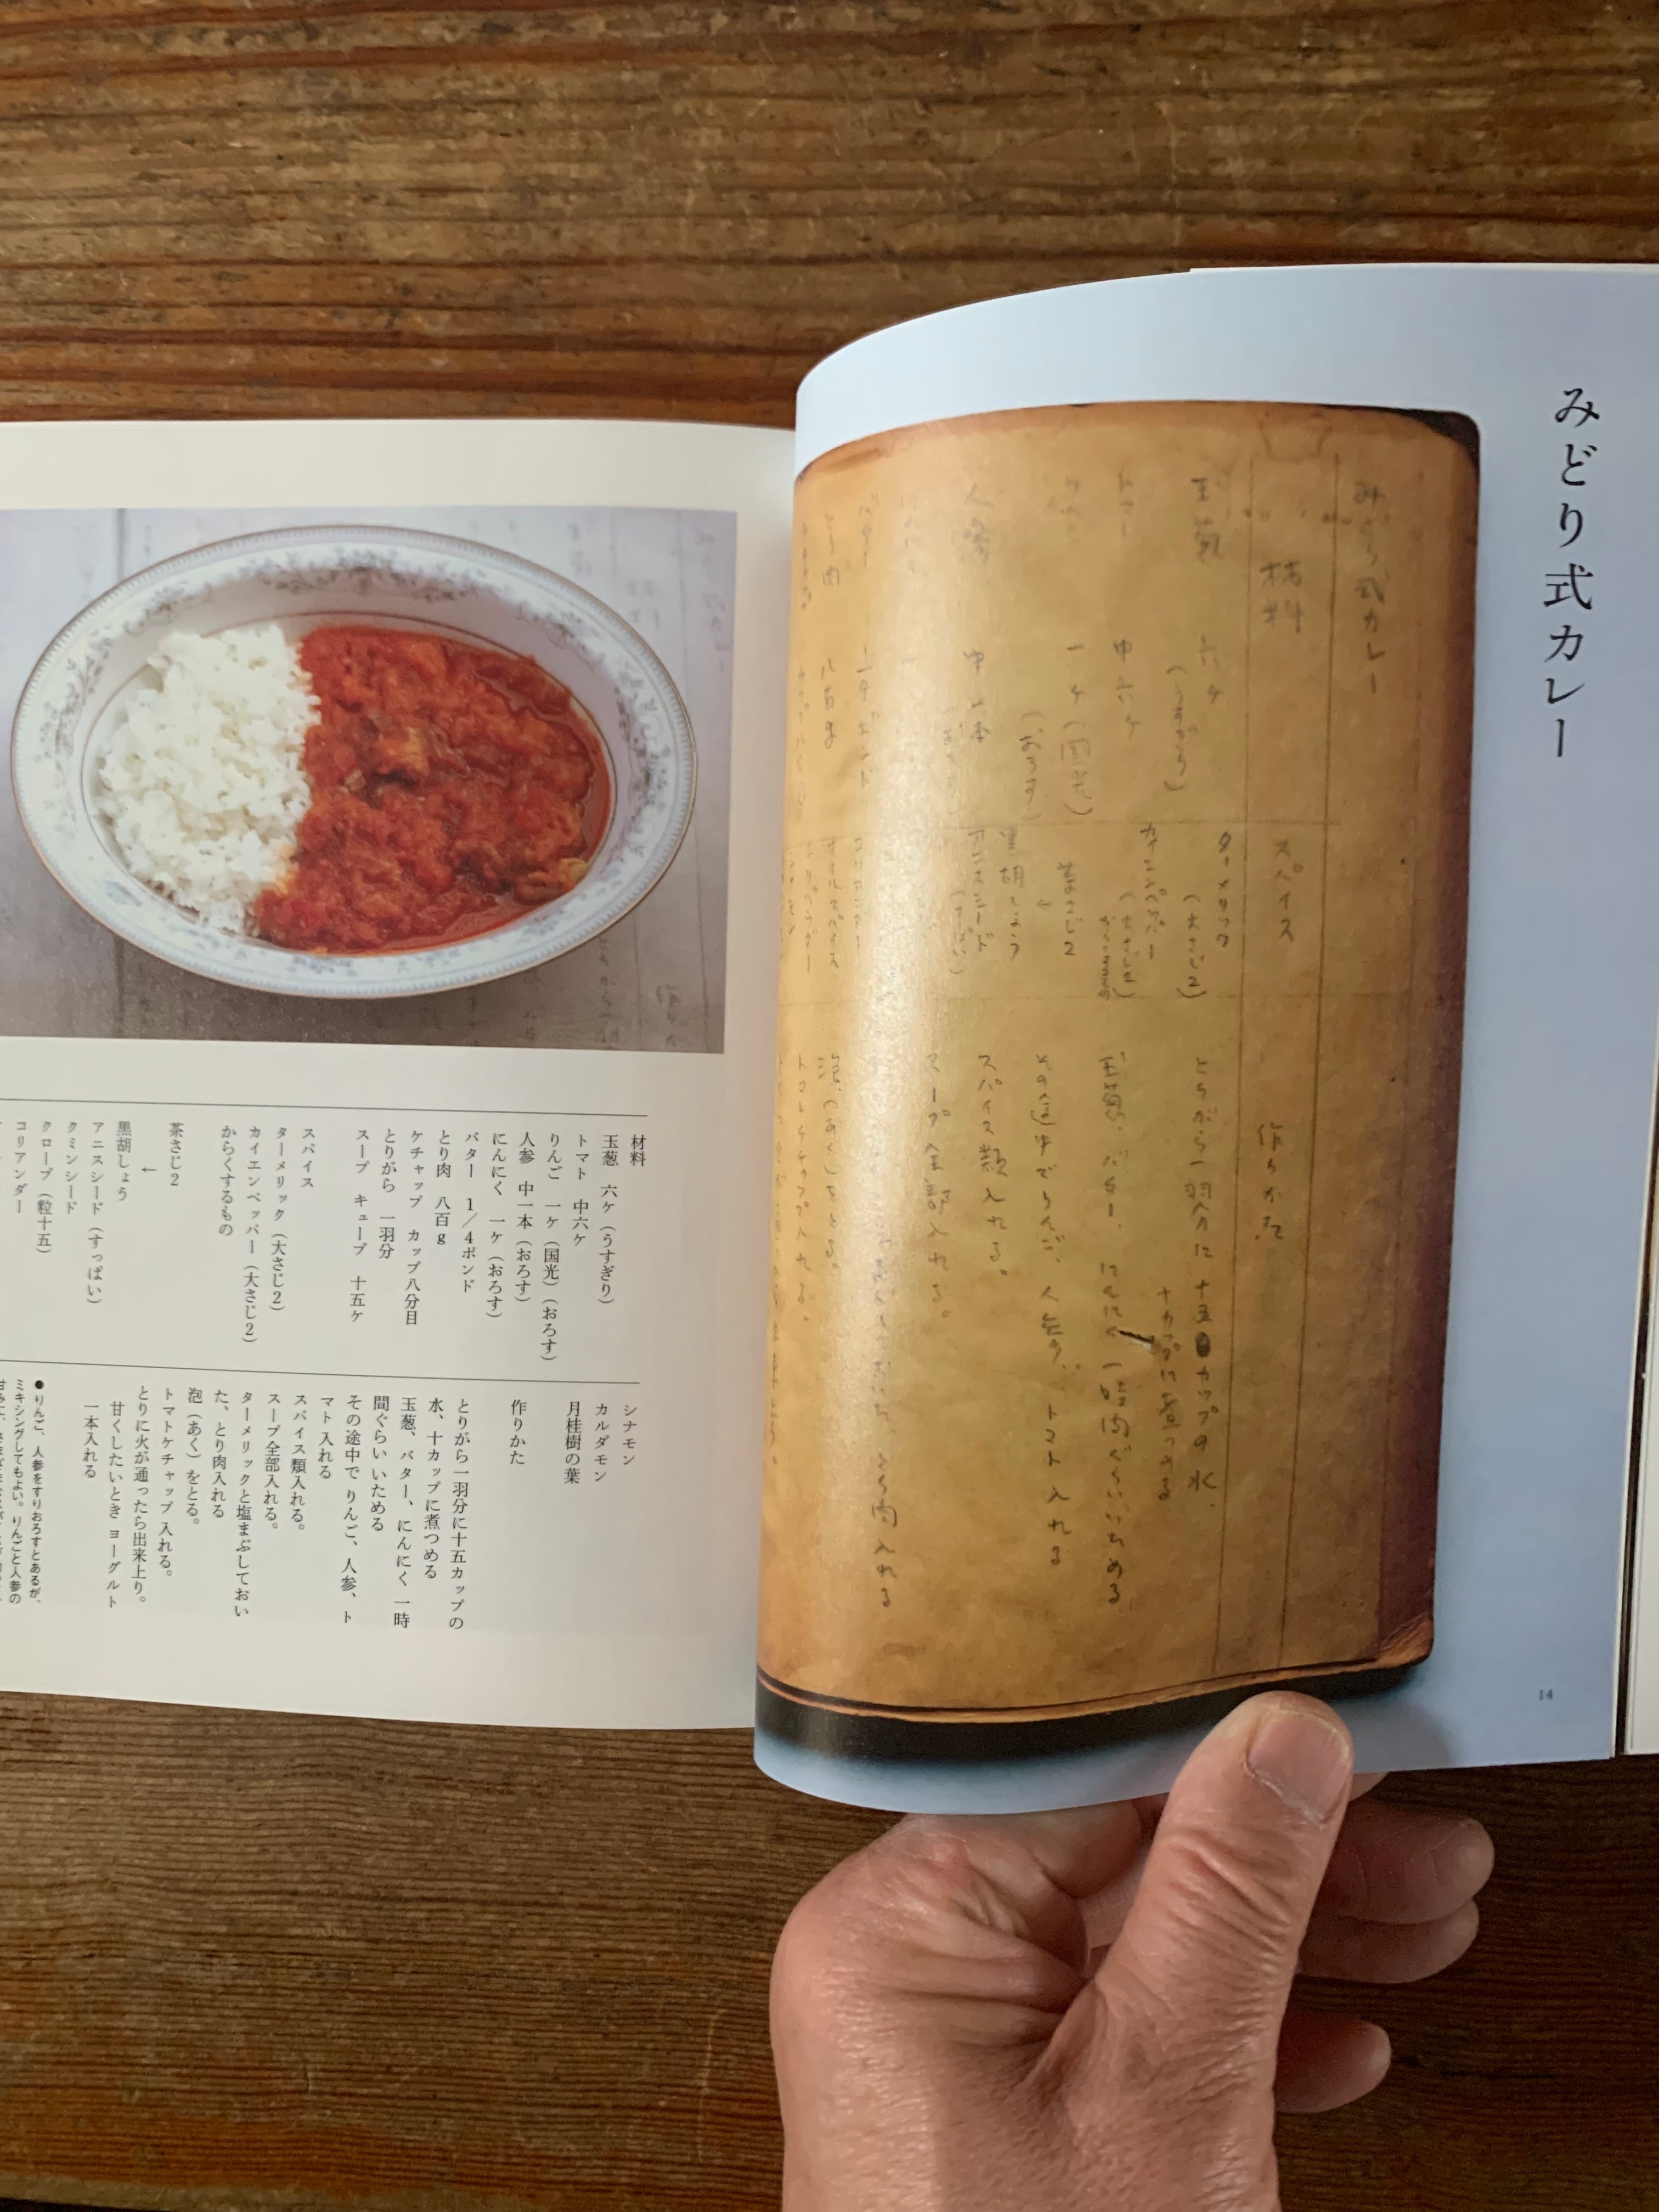 みどり式カレー
みどり式カレー
材料
スパイス
作りかた
玉葱 六ケ
(うすぎり)
ターメリック
(大さじ2)
とりがら一羽分に十五カップの水、
十カップに煮つめる
トマト 中六ケ
カイエンペッパー
(大さじ2)
からくするもの
玉葱、バター、にんにく 一時間ぐらいいためる
一ケ(国光)
(おろす)
茶さじ2
↑
黒胡しょう
その途中でりんご、人参、トマト 入れる
人参 中一本
アニスシード
(すっぱい)
スパイス類入れる。
スープ全部入れる。
とり肉入れる
とり肉 八百g
コリアンダー
オールスパイス
泡(あく)をとる。
トマトケチャップ入れる。
14
材料
玉葱 六ケ(うすぎり)
トマト 中六ケ
りんご 一ケ(国光)(おろす)
人参 中一本(おろす)
にんにく 一ケ(おろす)
バター 1/4ポンド
とり肉 八百g
ケチャップ カップ八分目
とりがら 一羽分
スープ キューブ 十五ケ
スパイス
ターメリック(大さじ2)
カイエンペッパー(大さじ2)
からくするもの
茶さじ2
↑
黒胡しょう
アニスシード(すっぱい)
クミンシード
クローブ(粒十五)
コリアンダー
シナモン
カルダモン
月桂樹の葉
作りかた
とりがら一羽分に十五カップの
水、十カップに煮つめる
玉葱、バター、にんにく 一時
間ぐらい いためる
その途中で りんご、人参、ト
マト 入れる
スパイス類入れる。
スープ全部入れる。
ターメリックと塩まぶしておい
た、とり肉入れる
泡(あく)をとる。
トマトケチャップ 入れる。
とりに火が通ったら出来上り。
甘くしたいとき ヨーグルト
一本入れる
●りんご、人参をすりおろすとあるが、
ミキシングしてもよい。りんごと人参の